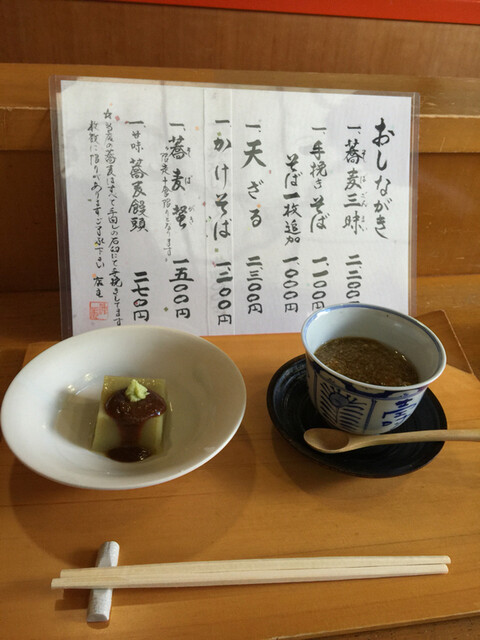 おしながき
一、蕎麦三昧 二二〇〇円
そばざんまい
一、手挽きそば 一一〇〇円
そば一枚追加 一〇〇〇円
一、天ざる 二三〇〇円
一、かけそば 一二〇〇円
一、蕎麦掻 一五〇〇円
そばがき
一、甘味 蕎麦饅頭 二七〇円
☆当庵の蕎麦はすべて手回しの石臼にて手挽きしてます
枚数に限りがありますご了承下さい